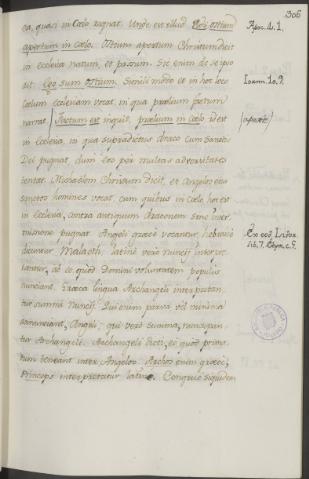 306
ea, quasi in Cœlo pugnat. Unde est illud. Ecce ostium
Apoc. 4. 1.
apertum in cœlo. Ostium apertum Christum dicit
in ecclesia natum, et passum. Sic enim de se ipso
ait. Ego sum ostium. Simili modo et in hoc loco
Ioann. 10. 9.
Cœlum ecclesiam vocat, in qua prælium factum
narrat. Factum est inquit, prælium in cœlo idest
in Ecclesia, in qua supradictus draco cum Sanctis
Dei pugnat, dum eos per multas adversitates
tentat. Michaelem Christum dicit, et Angelos eius
sanctos homines vocat, cum quibus in cœlo hoc est
in Ecclesia, contra antiquum draconem sine inter
missione pugnat. Angeli græcè vocantur, hebraicè
Ex eod. Isidor.
dicuntur Malaoth, latinè verò nuncij interpre
lib. 7. Etym. c. 5.
tantur, ab eo quod Domini voluntatem populis
nuncient. Græca lingua Archangeli interpretan
tur summi nuncij. Qui enim parva vel minima
annunciant, Angeli; qui verò summa, nuncupan
tur Archangeli. Archangeli dicti, eo quod prima
tum teneant inter Angelos. Archos enim græcè,
Princeps interpretatur latinè. Congruè siquidem